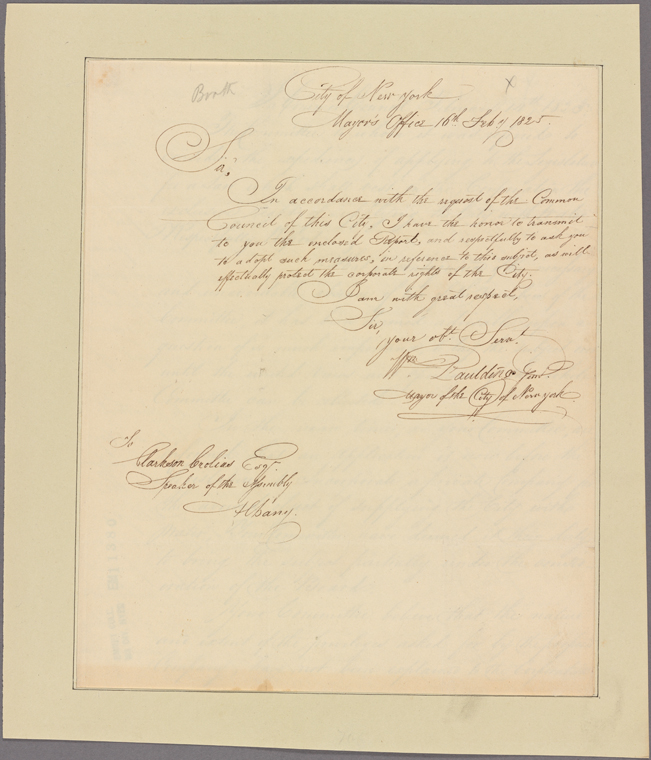 Booth
x
City of New York
Mayor's Office 16th Feby 1825.
Sir,
In accordance with the request of the Common
Council of this City, I have the honor to transmit
to you the enclosed Report, and respectfully to ask you
to adopt such measures, in reference to this subject, as will
effectually protect the corporate rights of the City.
I am with great respect,
Sir,
your obt. Servt.
Wm Paulding Junr.
Mayor of the City of New York
To
Clarkson Crolius Esqr.
Speaker of the Assembly
Albany.